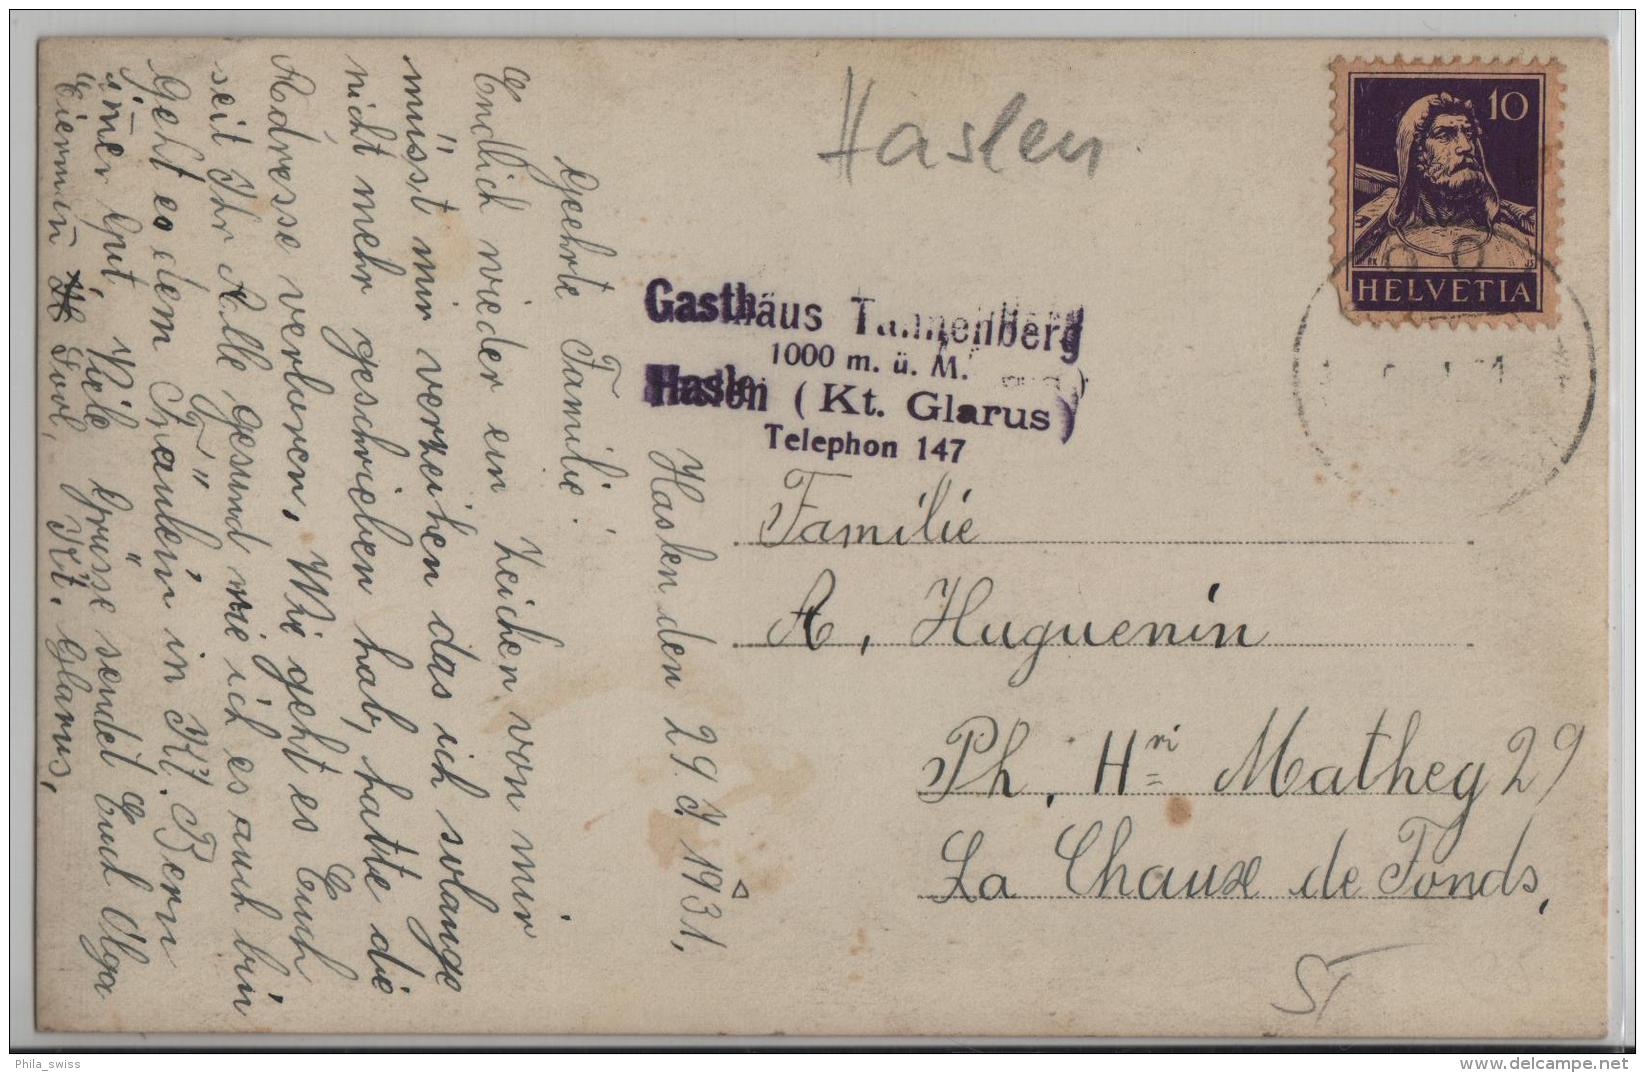 Haslen
10
HELVETIA
Gasthaus Tannenberg
1000 m. ü. M.
Haslen (Kt. Glarus)
Telephon 147
Haslen den 29. 1931,
Geehrte Familie.
Endlich wieder ein Zeichen von mir
müsst mir verzeihen das ich solange
nicht mehr geschrieben hab, hatte die
Adresse verloren, Wie geht es Euch
seit Ihr Alle gesund wie ich es auch bin
Geht es dem Fräulein in Kt. Bern
imer Gut, Viele Grüsse sendet Euch Olga
Kt. Glarus,
Familie
A, Huguenin
Ph, Hri Mathey 29
La Chaux de Fonds,
ST
Phila_swiss
delcampe.net